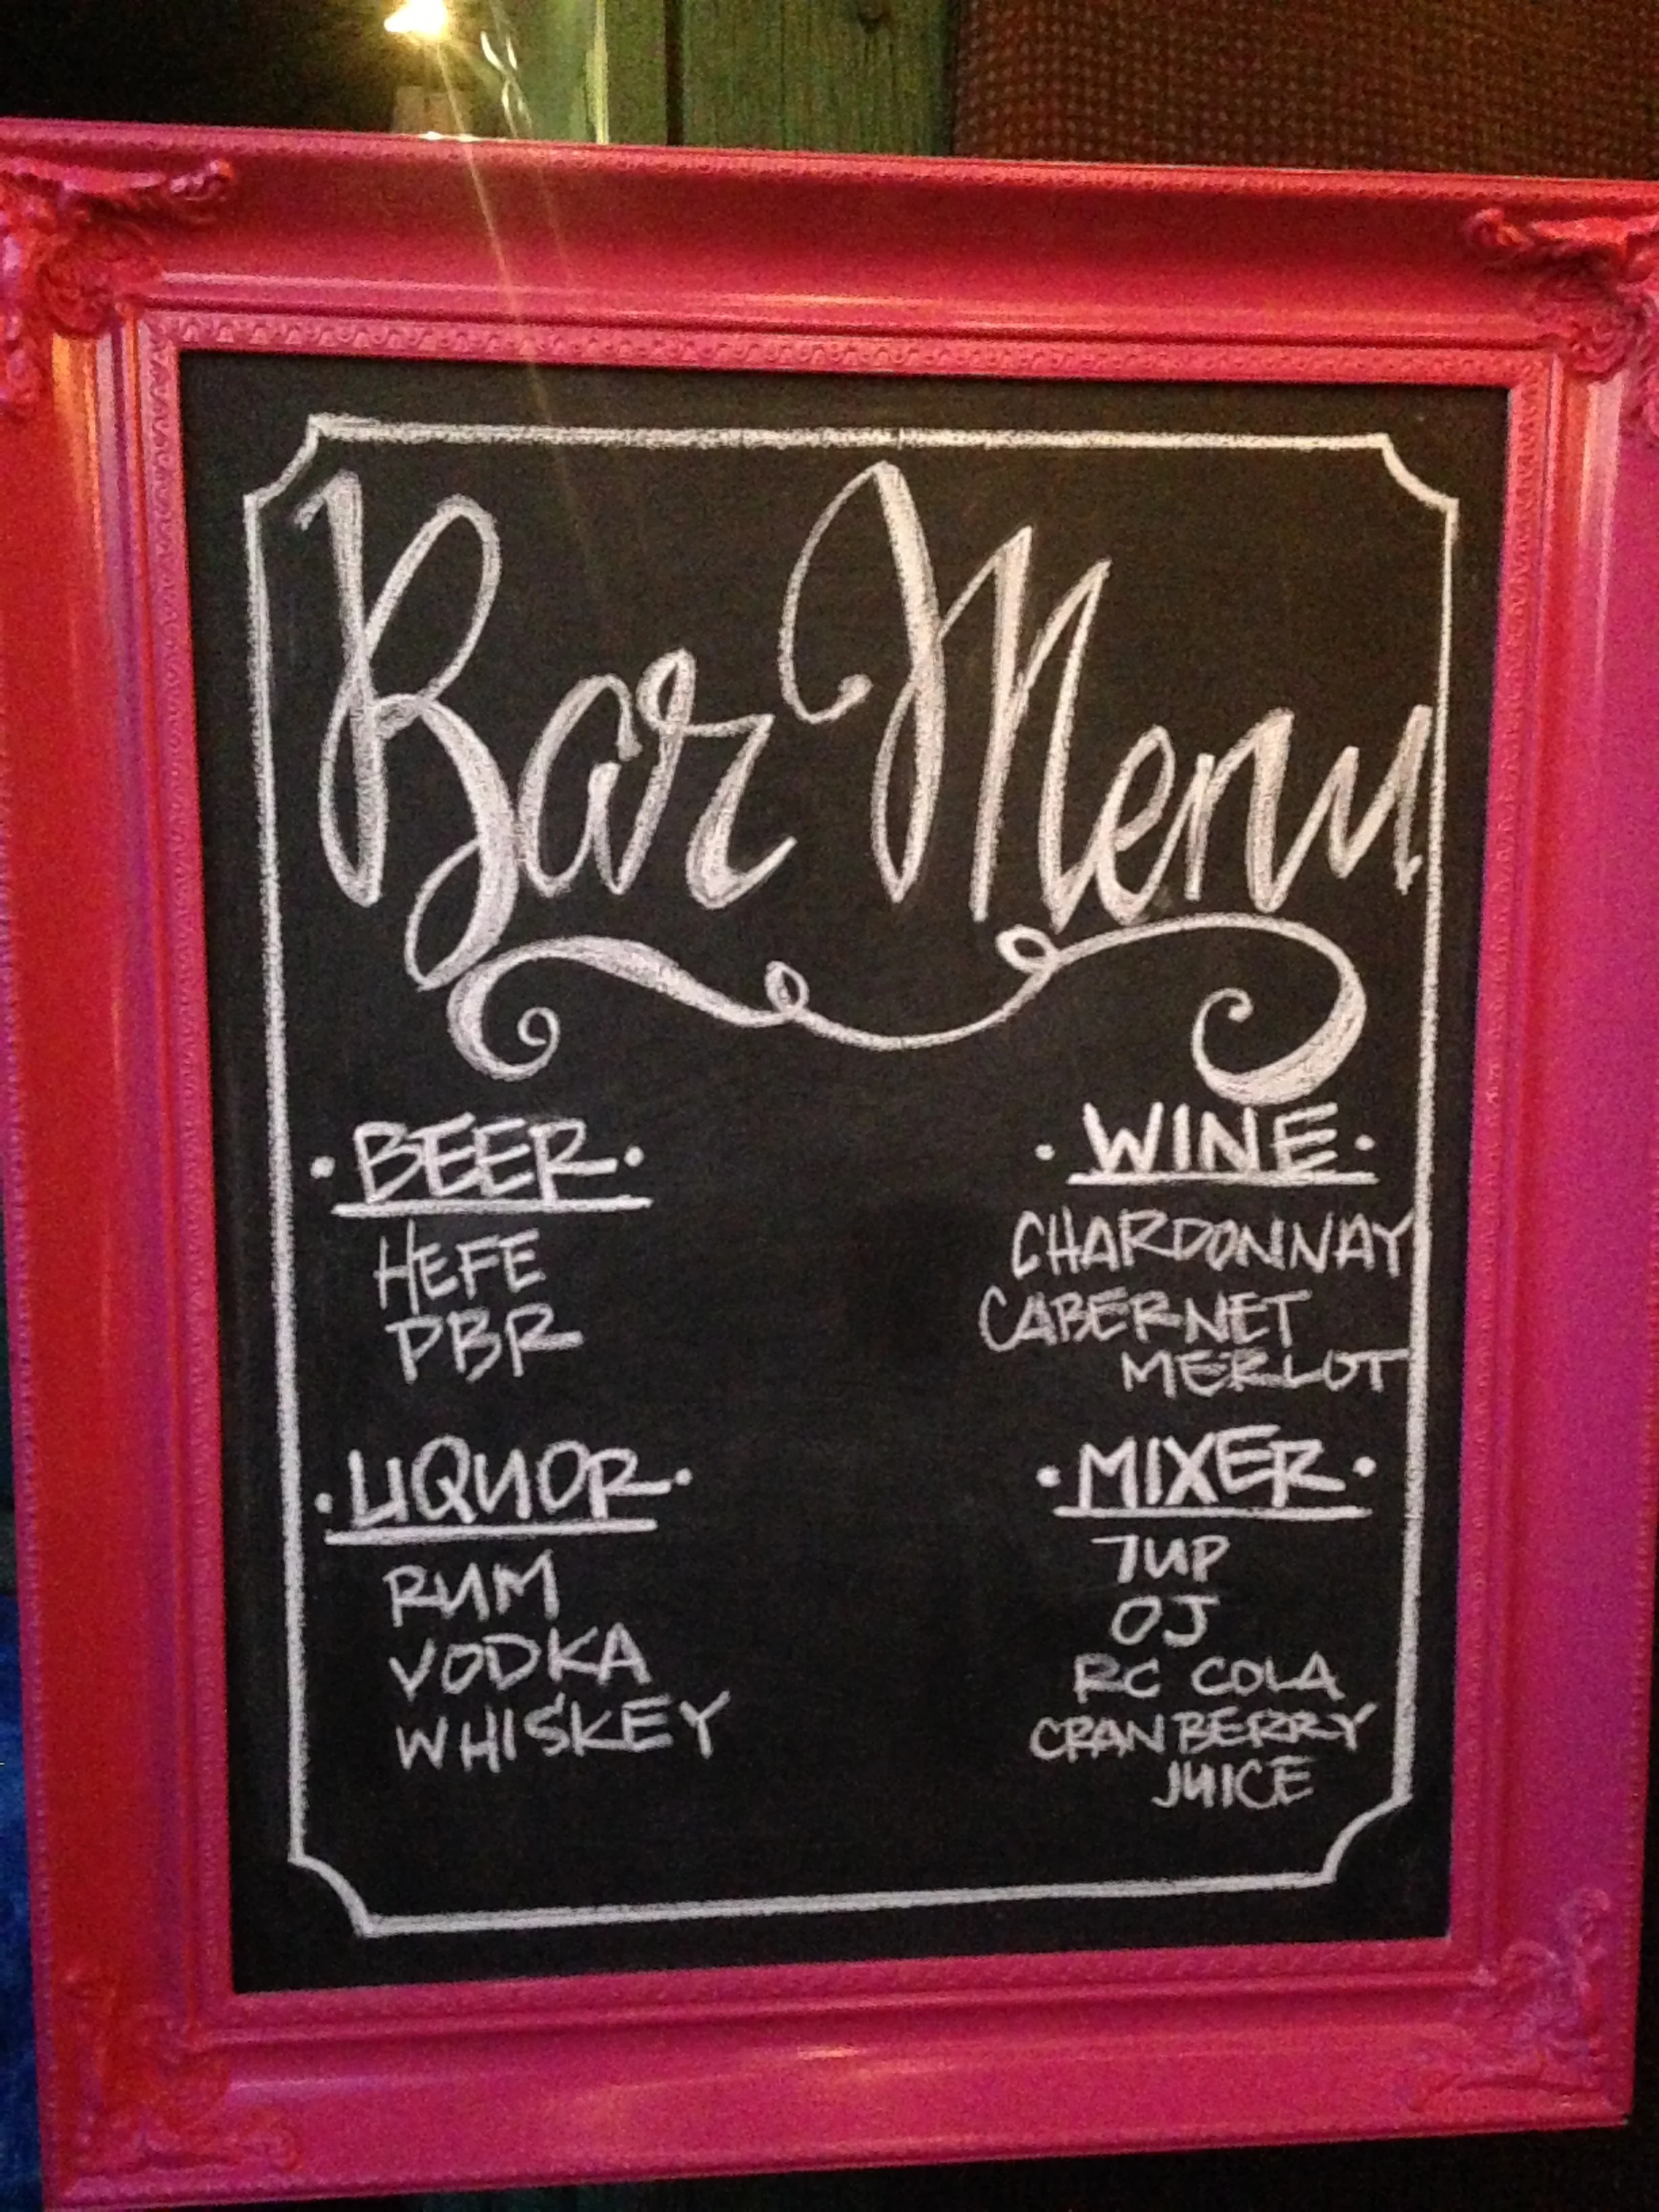 Bar Menu
BEER
HEFE
PBR
LIQUOR
RUM
VODKA
WHISKEY
WINE
CHARDONNAY
CABERNET
MERLOT
MIXER
7UP
OJ
RC COLA
CRANBERRY
JUICE